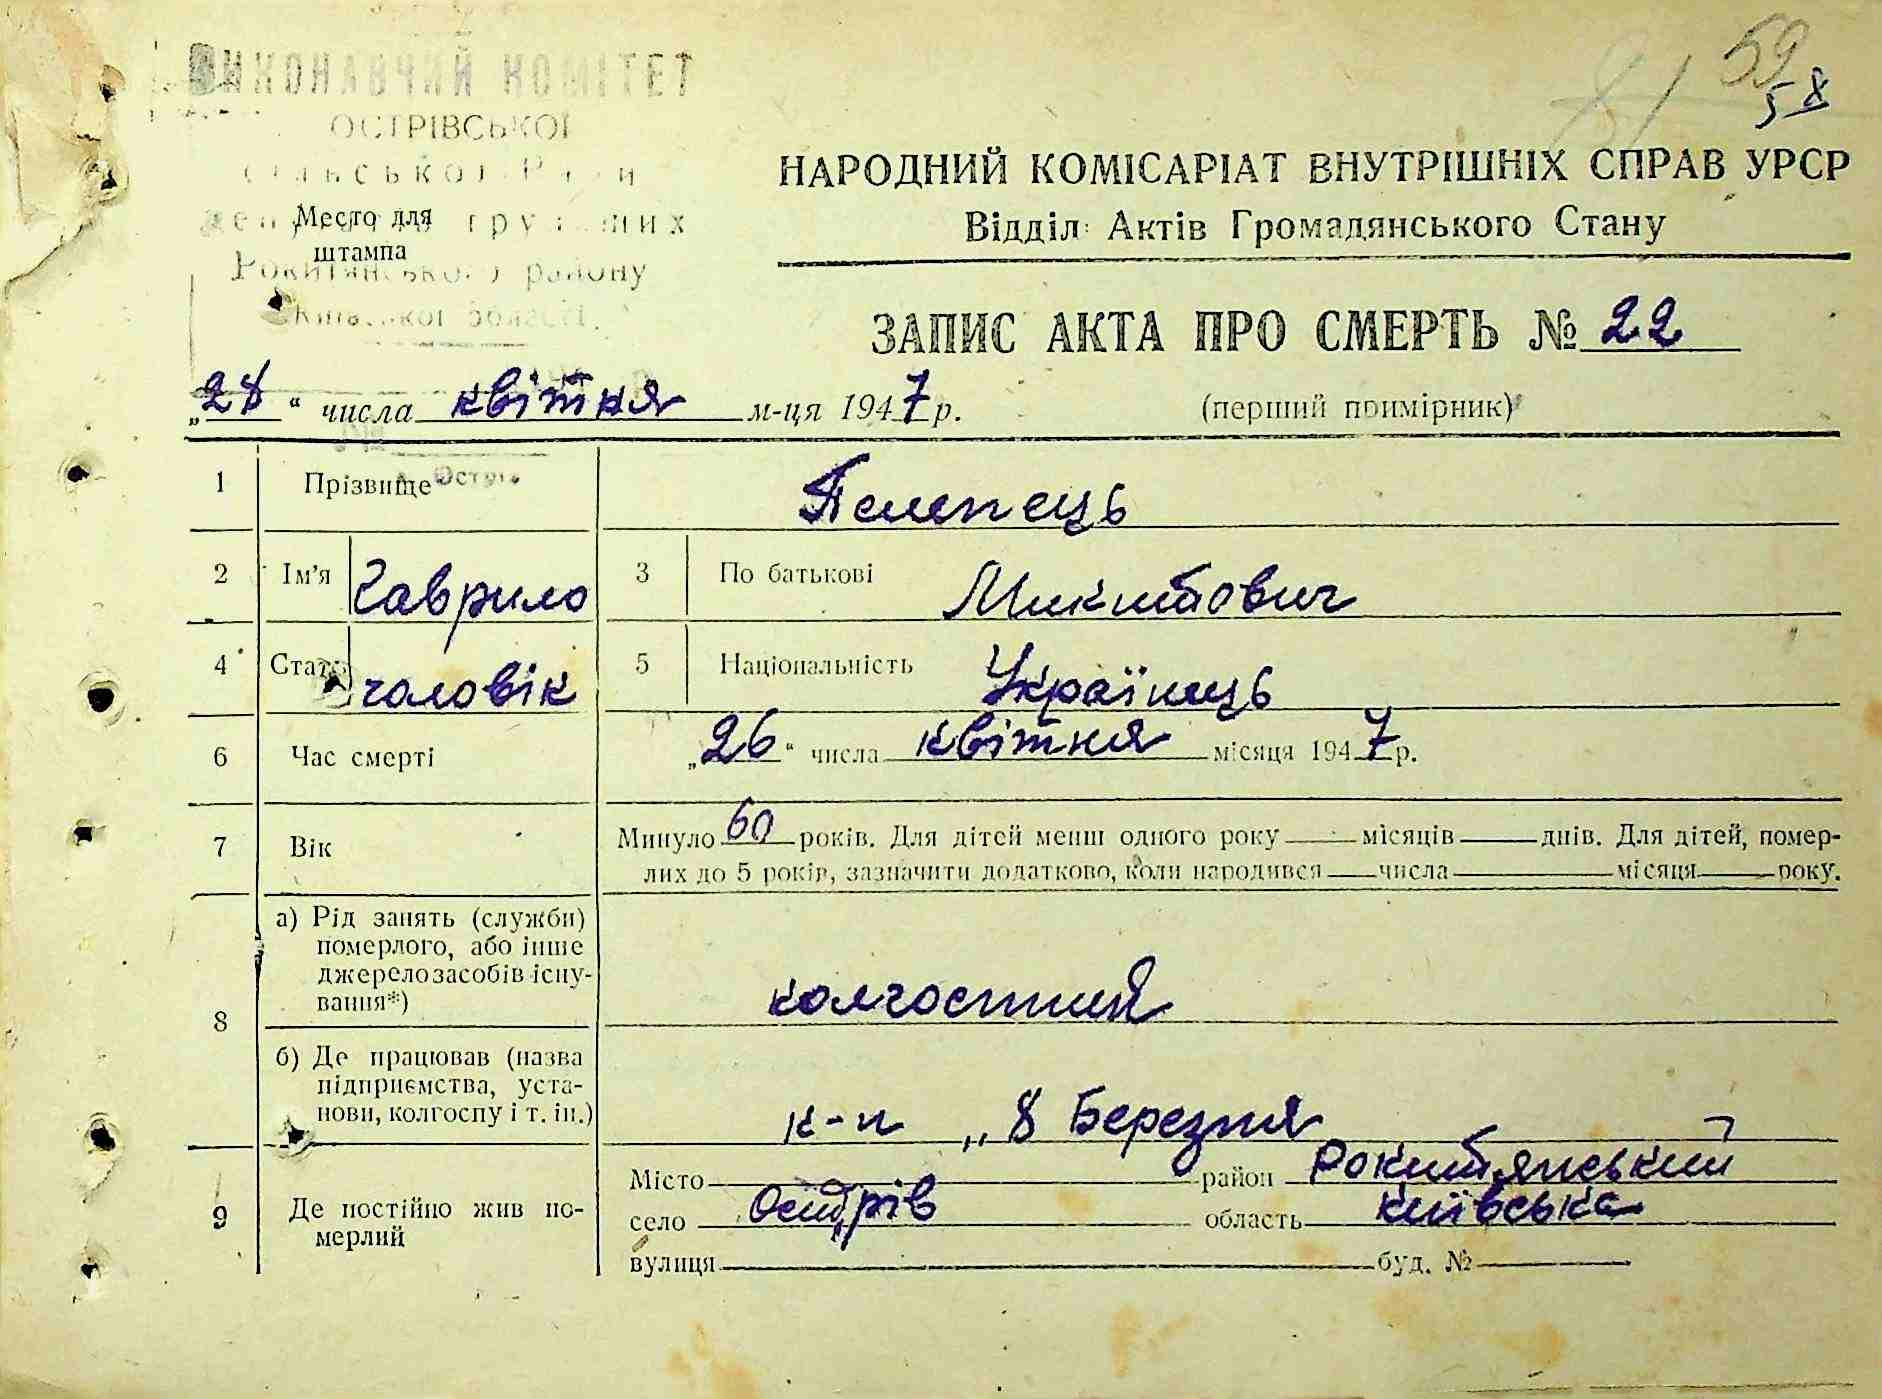 59
81
58
ВИКОНАВЧИЙ КОМІТЕТ
ОСТРІВСЬКОЇ
сільської Ради
Место для
штампа
Рокитянського району
Київської області
НАРОДНИЙ КОМІСАРІАТ ВНУТРІШНІХ СПРАВ УРСР
Відділ Актів Громадянського Стану
ЗАПИС АКТА ПРО СМЕРТЬ № 22
„28“ числа квітня м-ця 1947 р.
(перший примірник)
с. Острів
1 Прізвище Пелепець
2 Ім'я Гаврило 3 По батькові Микитович
4 Стать чоловік 5 Національність Українець
6 Час смерті „26“ числа квітня місяця 1947 р.
7 Вік Минуло 60 років. Для дітей менш одного року місяців днів. Для дітей, помер-
лих до 5 років, зазначити додатково, коли народився числа місяця року.
8 а) Рід занять (служби)
померлого, або інше
джерело засобів існу-
вання*)
колгоспния
б) Де працював (назва
підприємства, уста-
нови, колгоспу і т. ін.)
к-п „8 Березня
9 Де постійно жив по-
мерлий
Місто район Рокитянський
село Острів область київська
вулиця буд. №